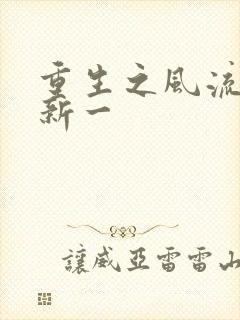 重生之風流
新一
讓威亞雷雷山